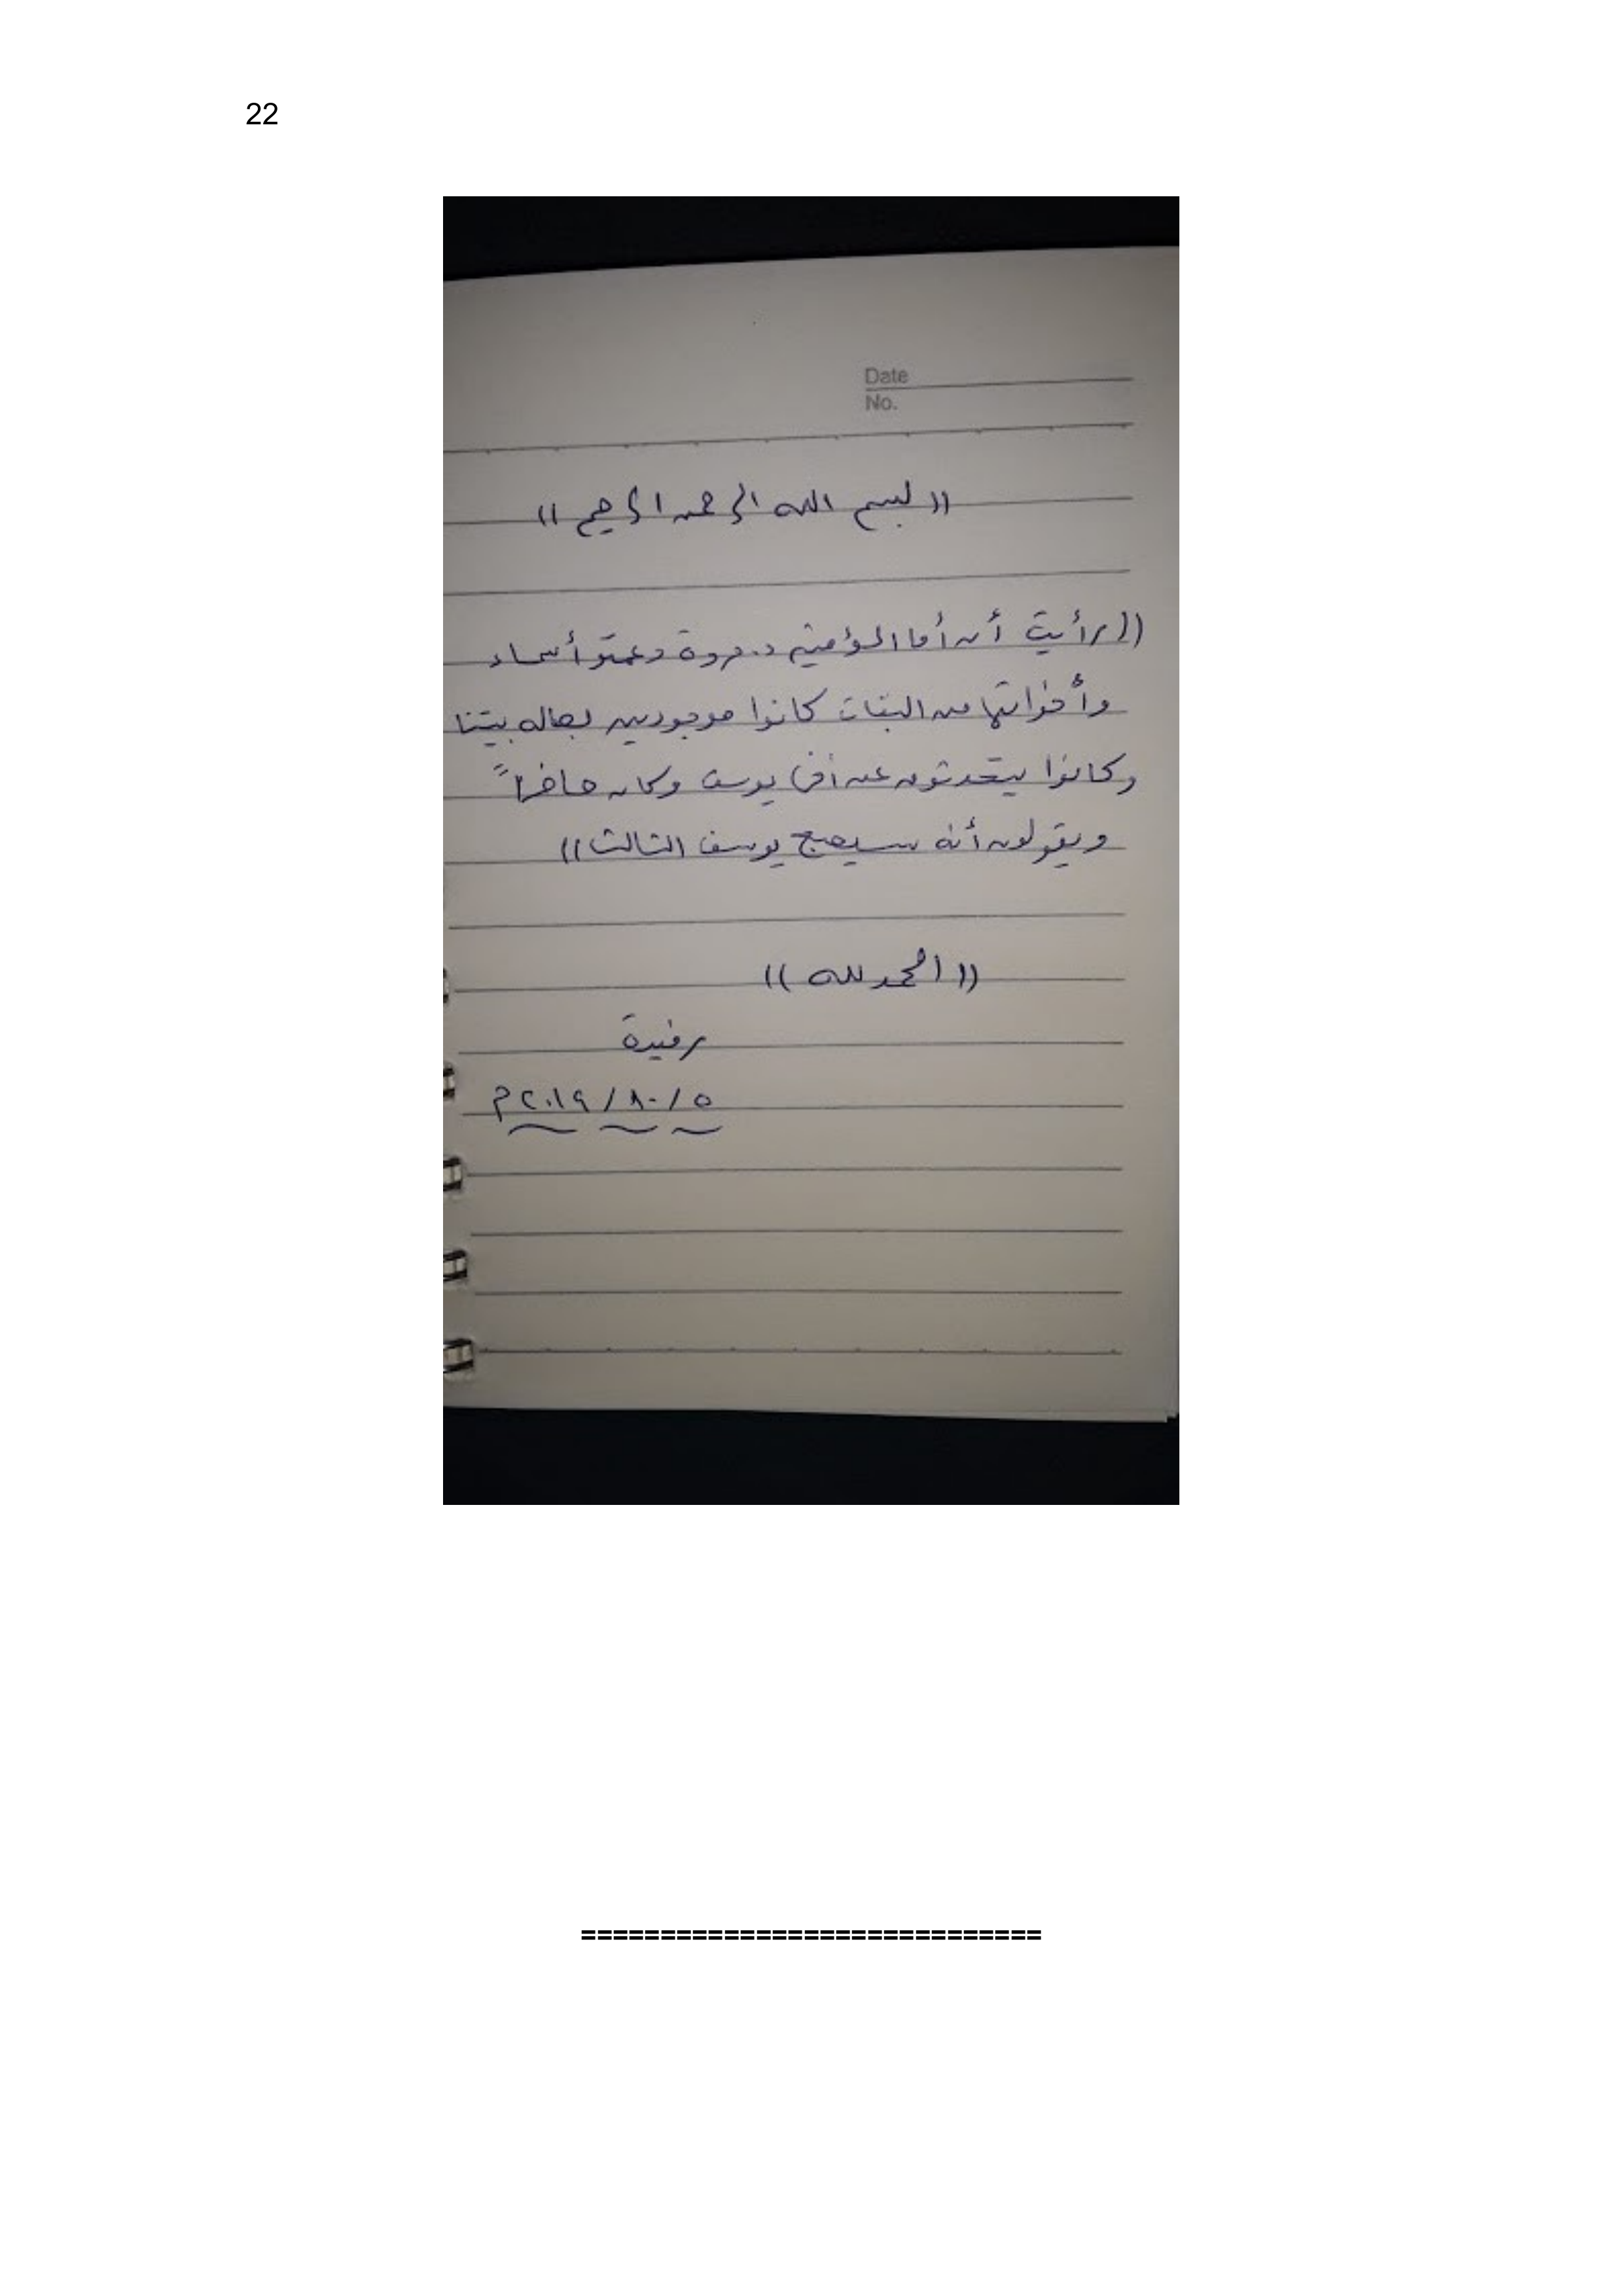 22
Date
No.
((بسم الله الرحمن الرحيم))
((رأيت أن أما المؤمنين د. مروة وعمتو أسماء
وأخواتها من البنات كانوا موجودين بصاله بيتنا
وكانوا يتحدثون عن أخي يوسف وكان حاضراً
ويقولون أنه سيصبح يوسف الثالث))
((الحمد لله))
رفيدة
٥ / ٨٠ / ٢٠١٩م
=============================